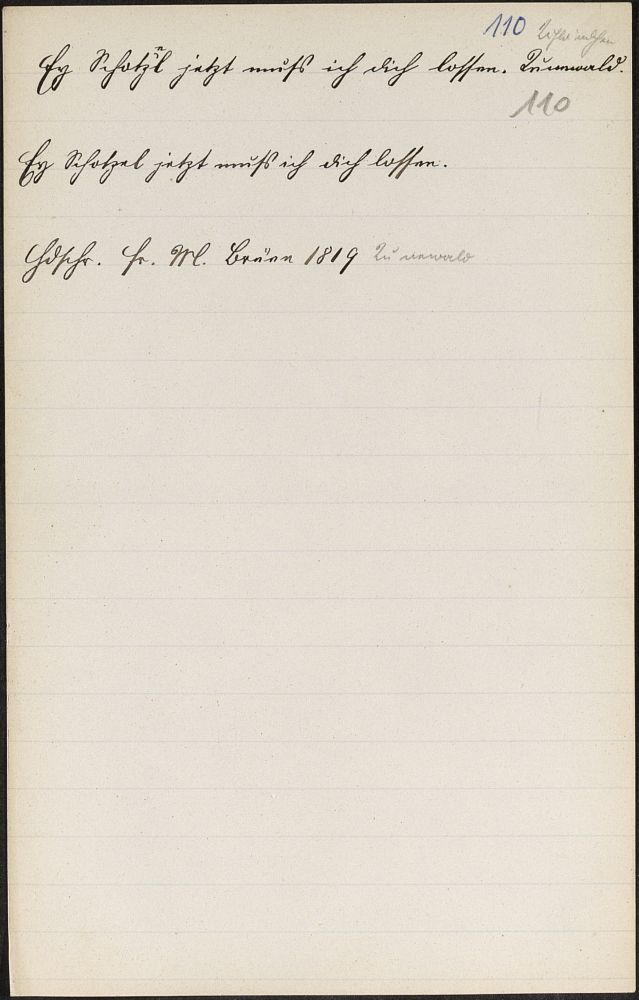 110
Ey Schotz'l jetzt muß ich dich lossen. Zunnwald.
110
Ey Schotzel jetzt muß ich dich lossen.
Hdschr. Fr. M. Brünn 1819